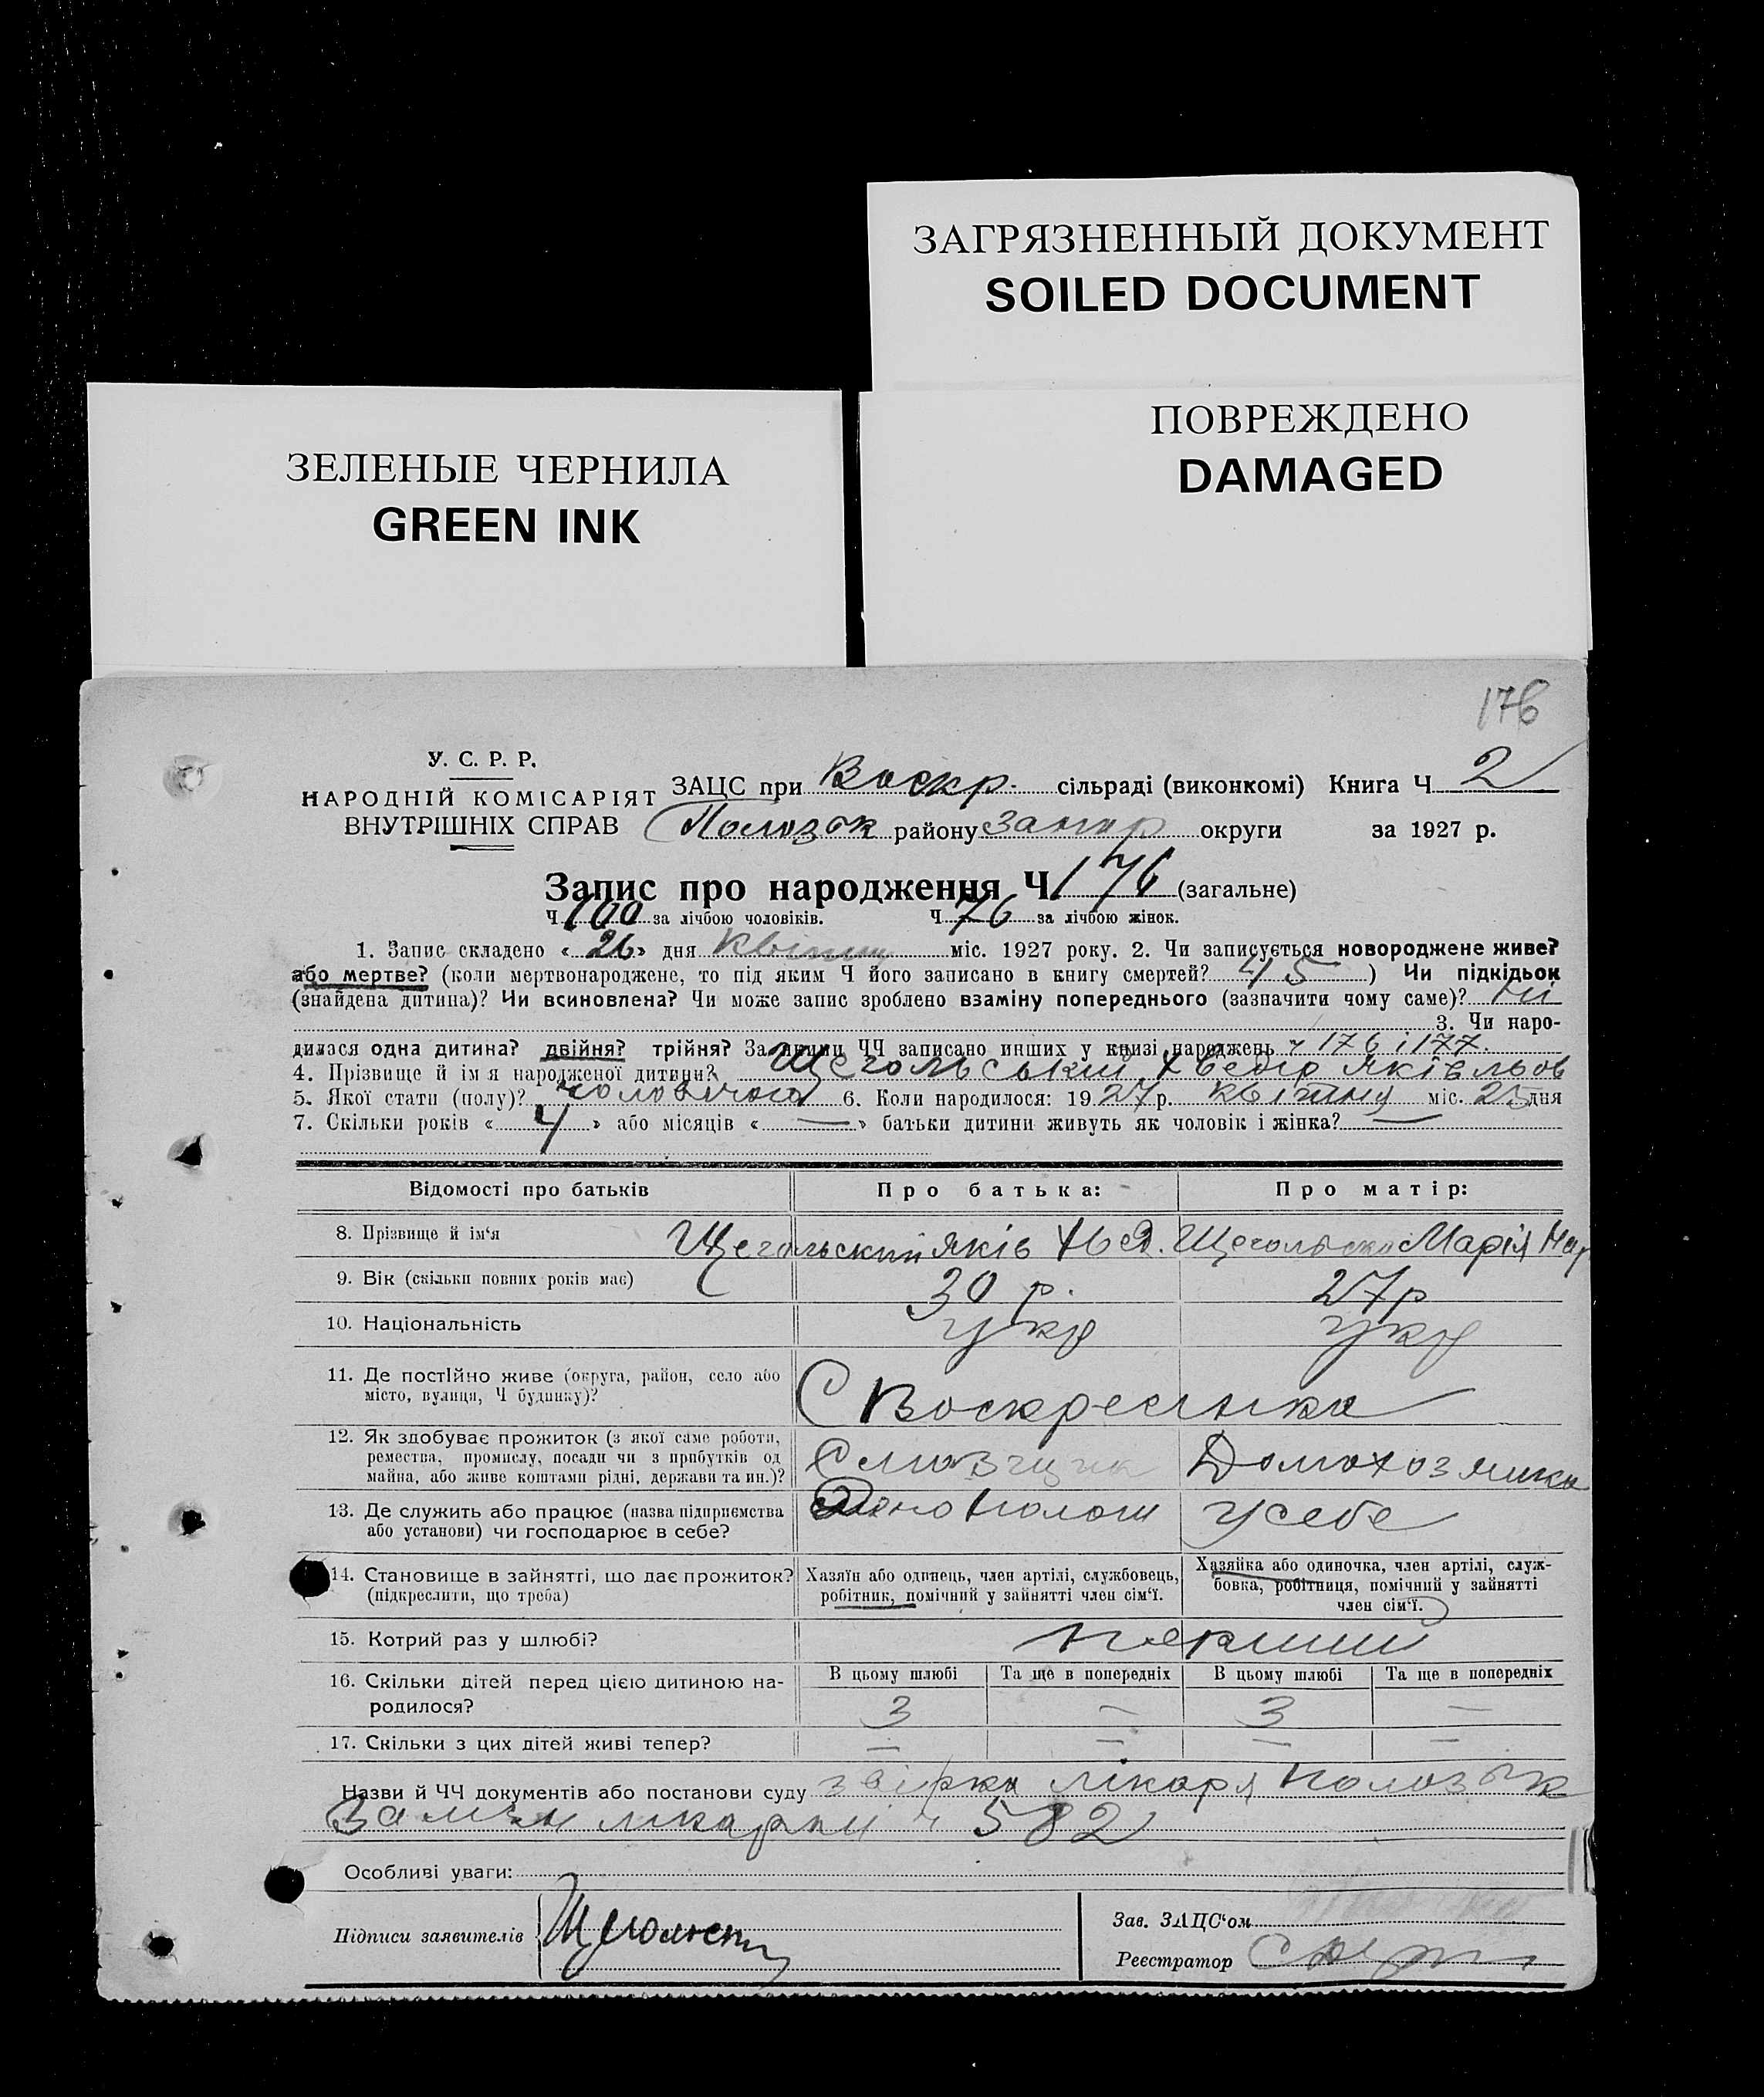 ЗАГРЯЗНЕННЫЙ ДОКУМЕНТ
SOILED DOCUMENT
ПОВРЕЖДЕНО
DAMAGED
ЗЕЛЕНЫЕ ЧЕРНИЛА
GREEN INK
176
У. С. Р. Р.
НАРОДНІЙ КОМІСАРІЯТ
ВНУТРІШНІХ СПРАВ
ЗАЦС при Воскр. сільраді (виконкомі) Книга Ч 2
району округи за 1927 р.
Запис про народження Ч 176 (загальне)
Ч 100 за лічбою чоловіків. Ч 76 за лічбою жінок.
1. Запис складено « 26 » дня квітня міс. 1927 року. 2. Чи записується новороджене живе?
або мертве? (коли мертвонароджене, то під яким Ч його записано в книгу смертей? 45 ) Чи підкідьок
(знайдена дитина)? Чи всиновлена? Чи може запис зроблено взаміну попереднього (зазначити чому саме)? Ні
3. Чи наро-
дилася одна дитина? двійня? трійня? За якими ЧЧ записано инших у книзі народжень ч 176 і 177.
4. Прізвище й ім'я народженої дитини? Щегольський Хведір Яківльов
5. Якої стати (полу)? чоловічого 6. Коли народилося: 1927 р. квітня міс. 25 дня
7. Скільки років « 4 » або місяців « — » батьки дитини живуть як чоловік і жінка? —
Відомості про батьків Про батька: Про матір:
8. Прізвище й ім'я Щегольский Яків Хвед. Щегольска Марія
9. Вік (скільки повних років має) 30 р. 27 р
10. Національність укр укр
11. Де постійно живе (округа, район, село або
місто, вулиця, Ч будинку)? С Воскресенка
12. Як здобуває прожиток (з якої саме роботи,
ремества, промислу, посади чи з прибутків од
майна, або живе коштами рідні, держави та ин.)? Домохозяика
13. Де служить або працює (назва підприємства
або установи) чи господарює в себе? у себе
14. Становище в зайнятті, що дає прожиток?
(підкреслити, що треба)
Хазяїн або одинець, член артілі, службовець,
робітник, помічний у зайнятті член сім'ї.
Хазяйка або одиночка, член артілі, служ-
бовка, робітниця, помічний у зайнятті
член сім'ї.
15. Котрий раз у шлюбі? перший
16. Скільки дітей перед цією дитиною на-
родилося?
В цьому шлюбі Та ще в попередніх В цьому шлюбі Та ще в попередніх
3 — 3 —
17. Скільки з цих дітей живі тепер? — — — —
Назви й ЧЧ документів або постанови суду лікаря
ч 582
Особливі уваги:
Підписи заявителів
Зав. ЗАЦС'ом
Реєстратор